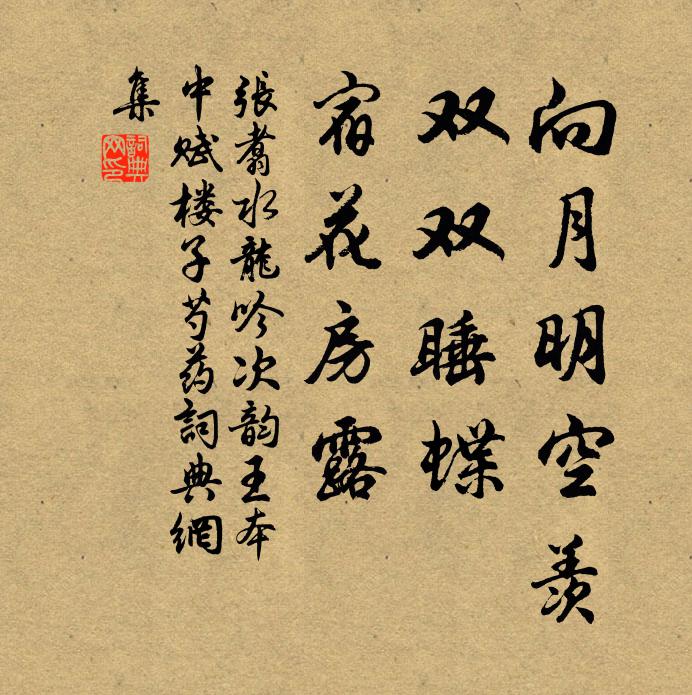 向月明空羡
双双睡蝶
宿花房露
張翥水龍吟次韵王本
中赋楼子芍药詞典網
集
詞典
网印